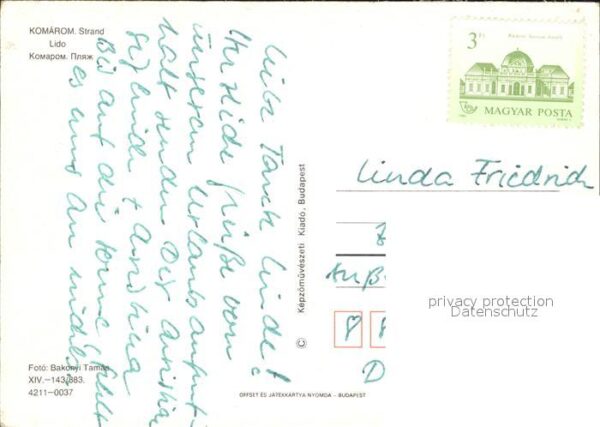 KOMÁROM. Strand
Lido
Комаром. Пляж
3 Ft
MAGYAR POSTA
Liebe Tante Linde!
Herzliche Grüße vom
unserem Urlaubsaufent-
halt senden Dir
Sieglinde +
Bis auf die Sonne gefällt
es uns an
Linda Friedrich
D
privacy protection
Datenschutz
Képzőművészeti Kiadó, Budapest
©
Fotó: Bakonyi Tamás
XIV.–143/883.
4211–0037
OFFSET ÉS JÁTÉKKÁRTYA NYOMDA – BUDAPEST